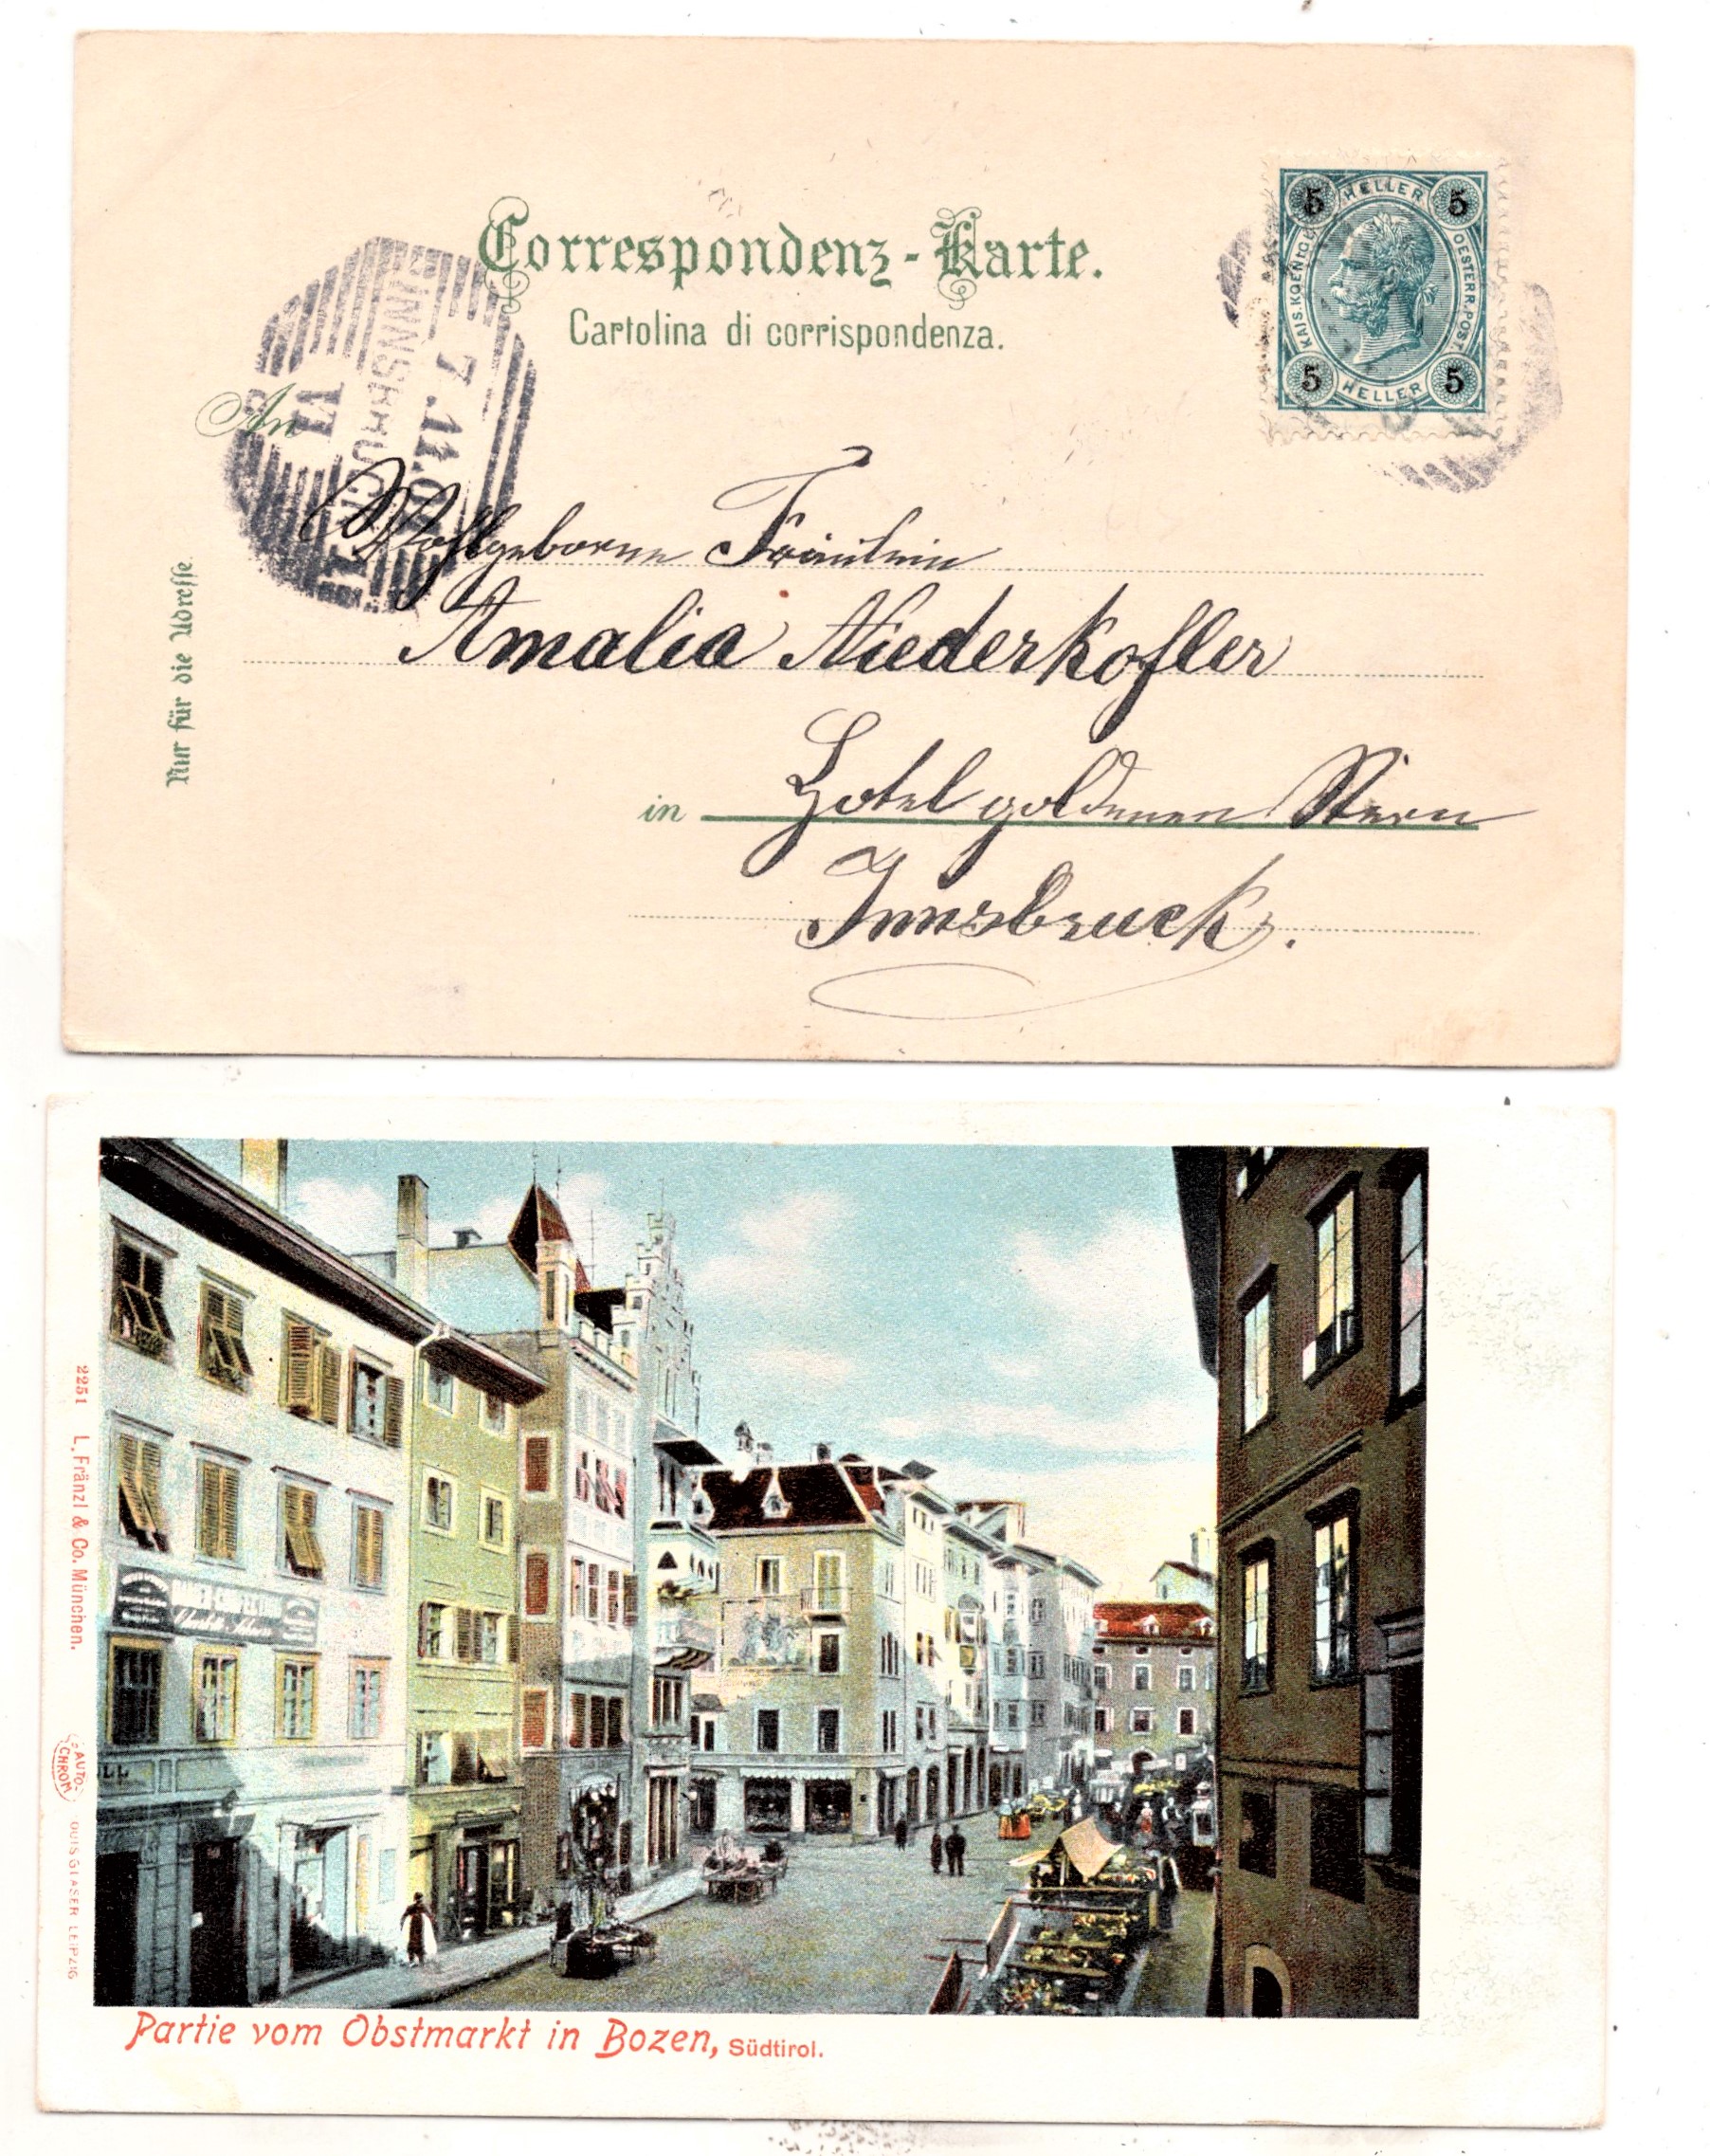 Correspondenz-Karte.
Cartolina di corrispondenza.
5 HELLER 5
KAIS. KOENIGL.
OESTERR. POST.
5 HELLER 5
INNSBRUCK
7.11.0
VI
An
Wohlgeborne Fräulein
Amalia Niederkofler
in Hotel goldenen Stern
Innsbruck.
Nur für die Adresse
2251 L. Fränzl & Co. München.
AUTO-
CHROM
LOUIS GLASER LEIPZIG
Partie vom Obstmarkt in Bozen, Südtirol.